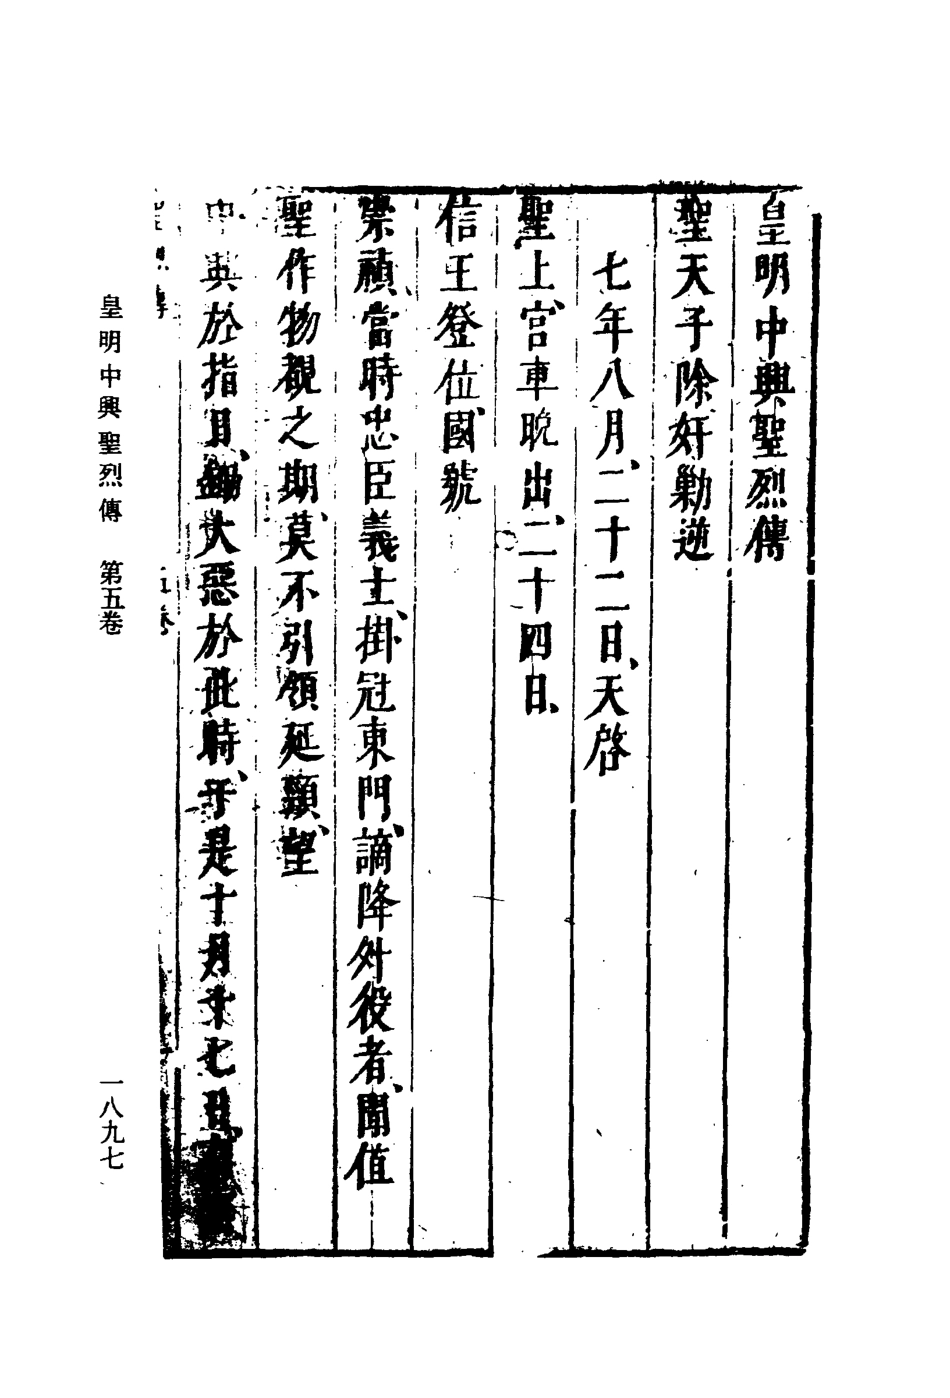 皇明中興聖烈傳
聖天子除奸勦逆
七年八月、二十二日、天啓
聖上、宮車晚出、二十四日、
信王登位、國號
崇禎、當時忠臣義士、掛冠東門、謫降外役者、聞值
聖作物覩之期、莫不引領延頸、望
中興於指日、鋤大惡於此時、于是十月十七日、
皇明中興聖烈傳 第五卷
一八九七